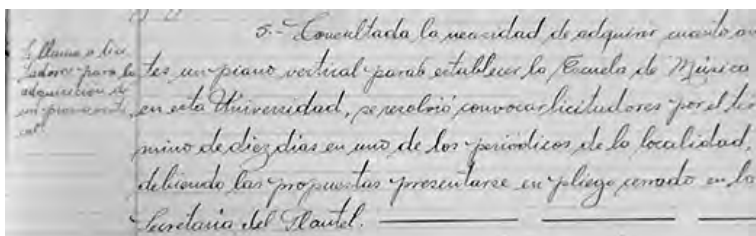 Se llama a lici
tadores para la
adquisición de
un piano verti
cal
5.- Consultada la necesidad de adquirir cuanto an
tes un piano vertical para establecer la Escuela de Música
en esta Universidad, se resolvió convocar licitadores por el tér
mino de diez días en uno de los periódicos de la localidad,
debiendo las propuestas presentarse en pliego cerrado en la
Secretaría del Plantel.